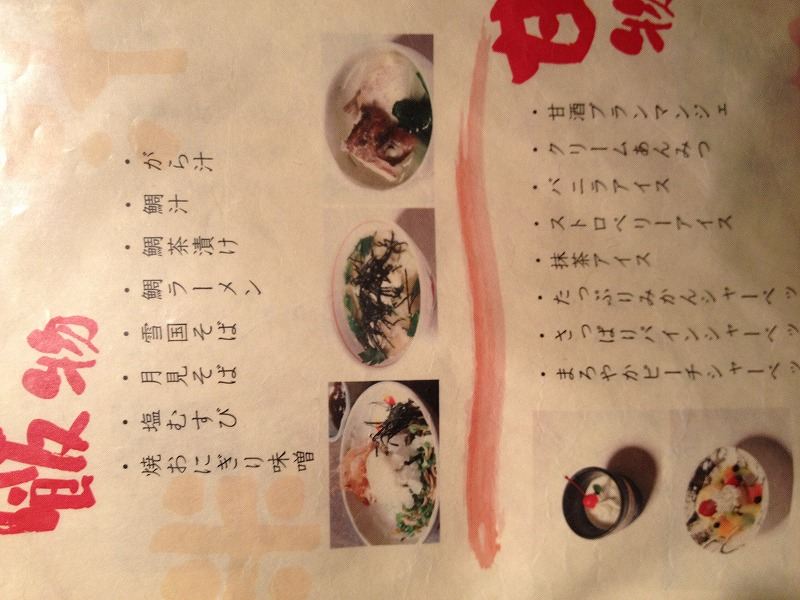 甘物
・甘酒ブランマンジェ
・クリームあんみつ
・バニラアイス
・ストロベリーアイス
・抹茶アイス
・たっぷりみかんシャーベッ
・さっぱりパインシャーベッ
・まろやかピーチシャーベッ
飯物
・がら汁
・鯛汁
・鯛茶漬け
・鯛ラーメン
・雪国そば
・月見そば
・塩むすび
・焼おにぎり味噌